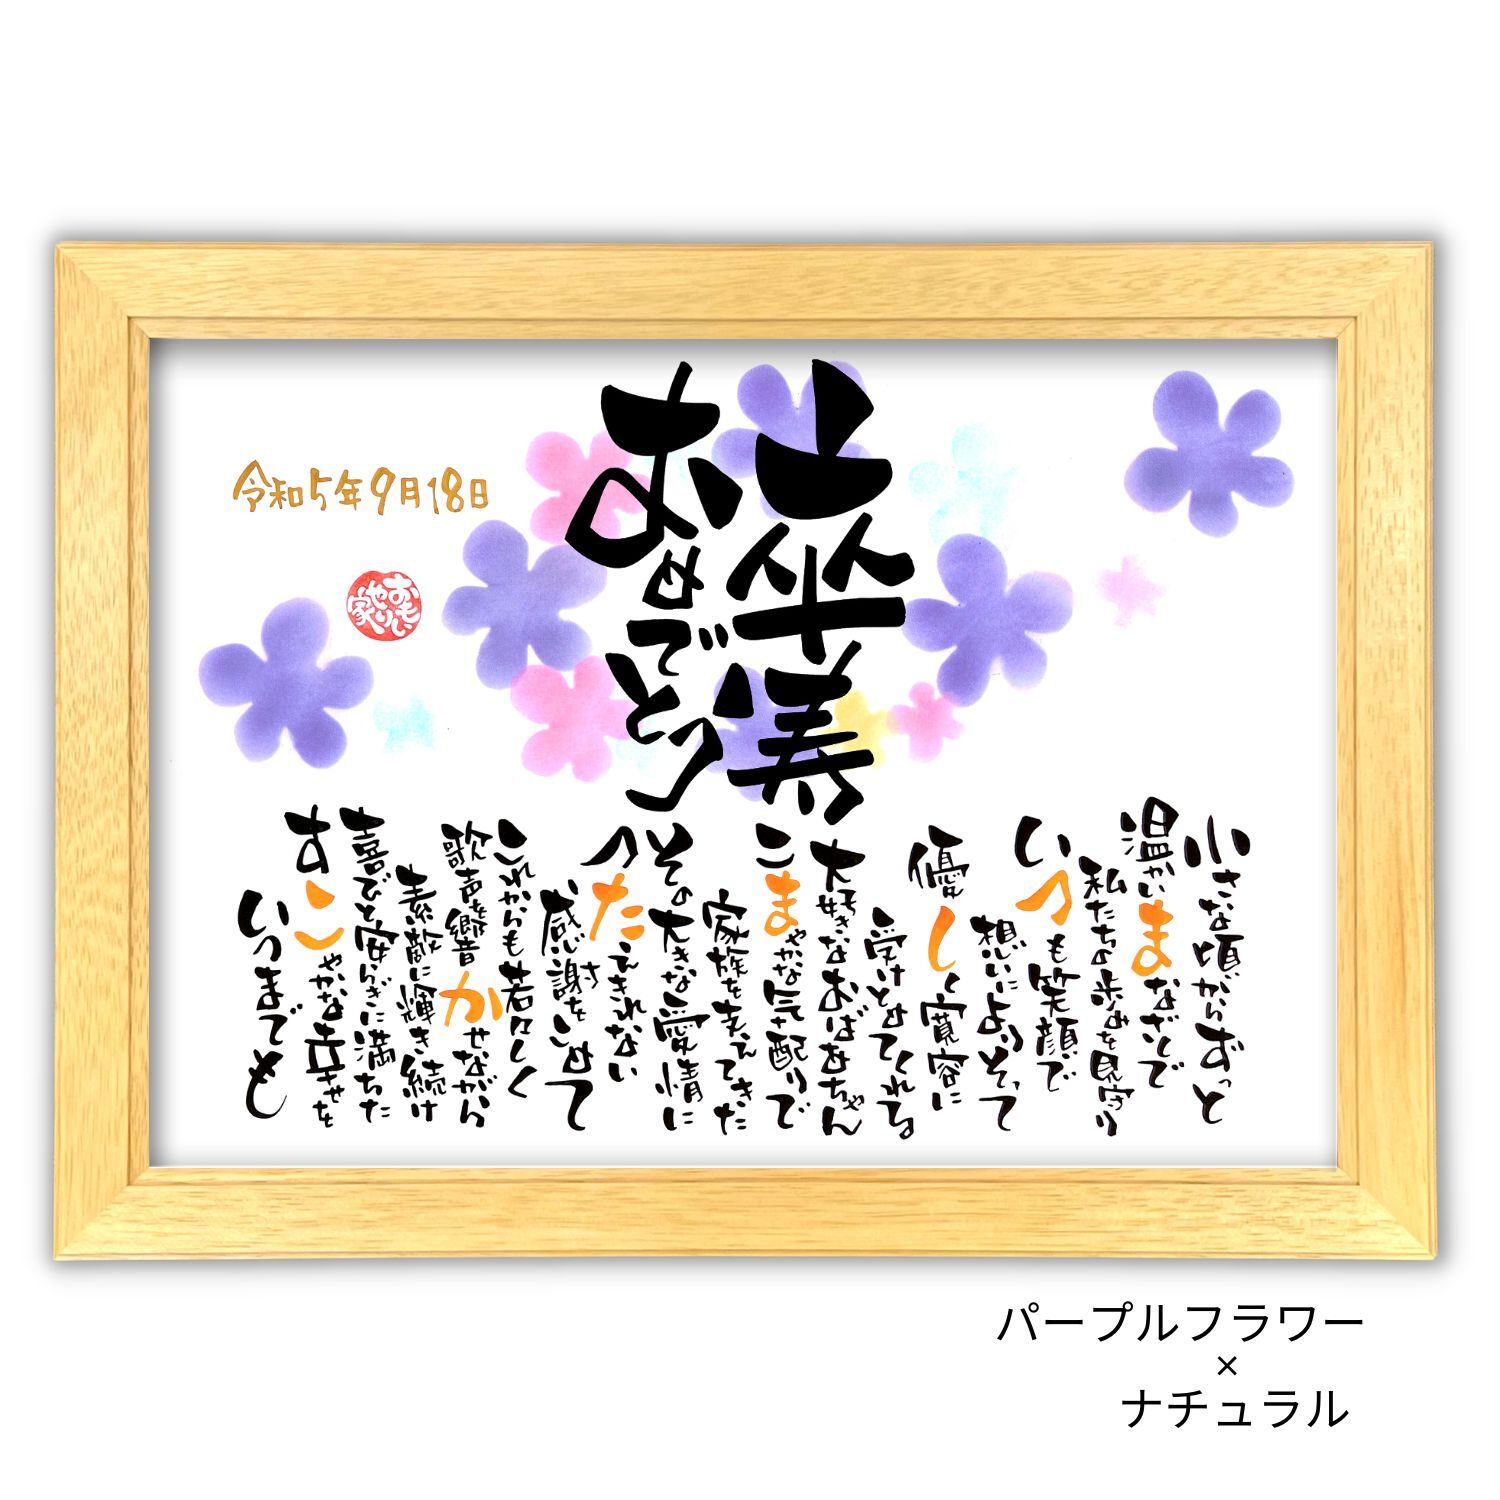 卒寿
おめでとう
令和5年9月18日
おもい
やり
家
小さな頃からずっと
温かいまなざしで
私たちの歩みを見守り
いつも笑顔で
想いによりそって
優しく寛容に
受けとめてくれる
大好きなおばあちゃん
こまやかな気配りで
家族を支えてきた
その大きな愛情に
つたえきれない
感謝をこめて
これからも若々しく
歌声を響かせながら
素敵に輝き続け
喜びと安らぎに満ちた
すこやかな幸せを
いつまでも
パープルフラワー
×
ナチュラル